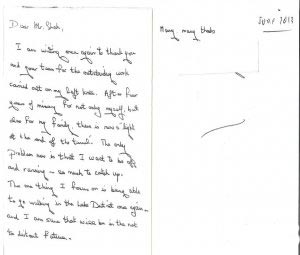 Dear Mr. Shah,
I am writing once again to thank you
and your team for the outstanding work
carried out on my left knee. After five
years of misery for not only myself, but
also for my family, there is now 'light
at the end of the tunnel'. The only
problem now is that I want to be off
and running – so much to catch up.
The one thing I focus on is being able
to go walking in the Lake District once again –
and I am sure that will be in the not
to distant future.
Many, many thanks
JUNE 2012